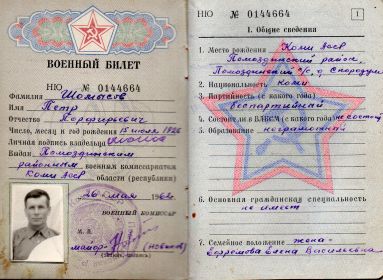 ВОЕННЫЙ БИЛЕТ
НЮ № 0144664
Фамилия Шомысов
Имя Петр
Отчество Порфирьевич
Число, месяц и год рождения 15 июля 1926
Личная подпись владельца
Выдан Помоздинским
районным военным комиссариатом
Коми АССР
области (республики)
26 мая 196
ВОЕННЫЙ КОМИССАР
М. П.
майор
(звание, подпись)
НЮ № 0144664
1
I. Общие сведения
1. Место рождения Коми АССР
Помоздинский район,
Помоздинский с/с, д.
2. Национальность коми
3. Партийность (с какого года)
беспартийный
4. Состоял ли в ВЛКСМ (с какого года) не состоял
5. Образование неграмотный
6. Основная гражданская специальность
не имеет
7. Семейное положение жена-
Ефремова Елена Васильевна